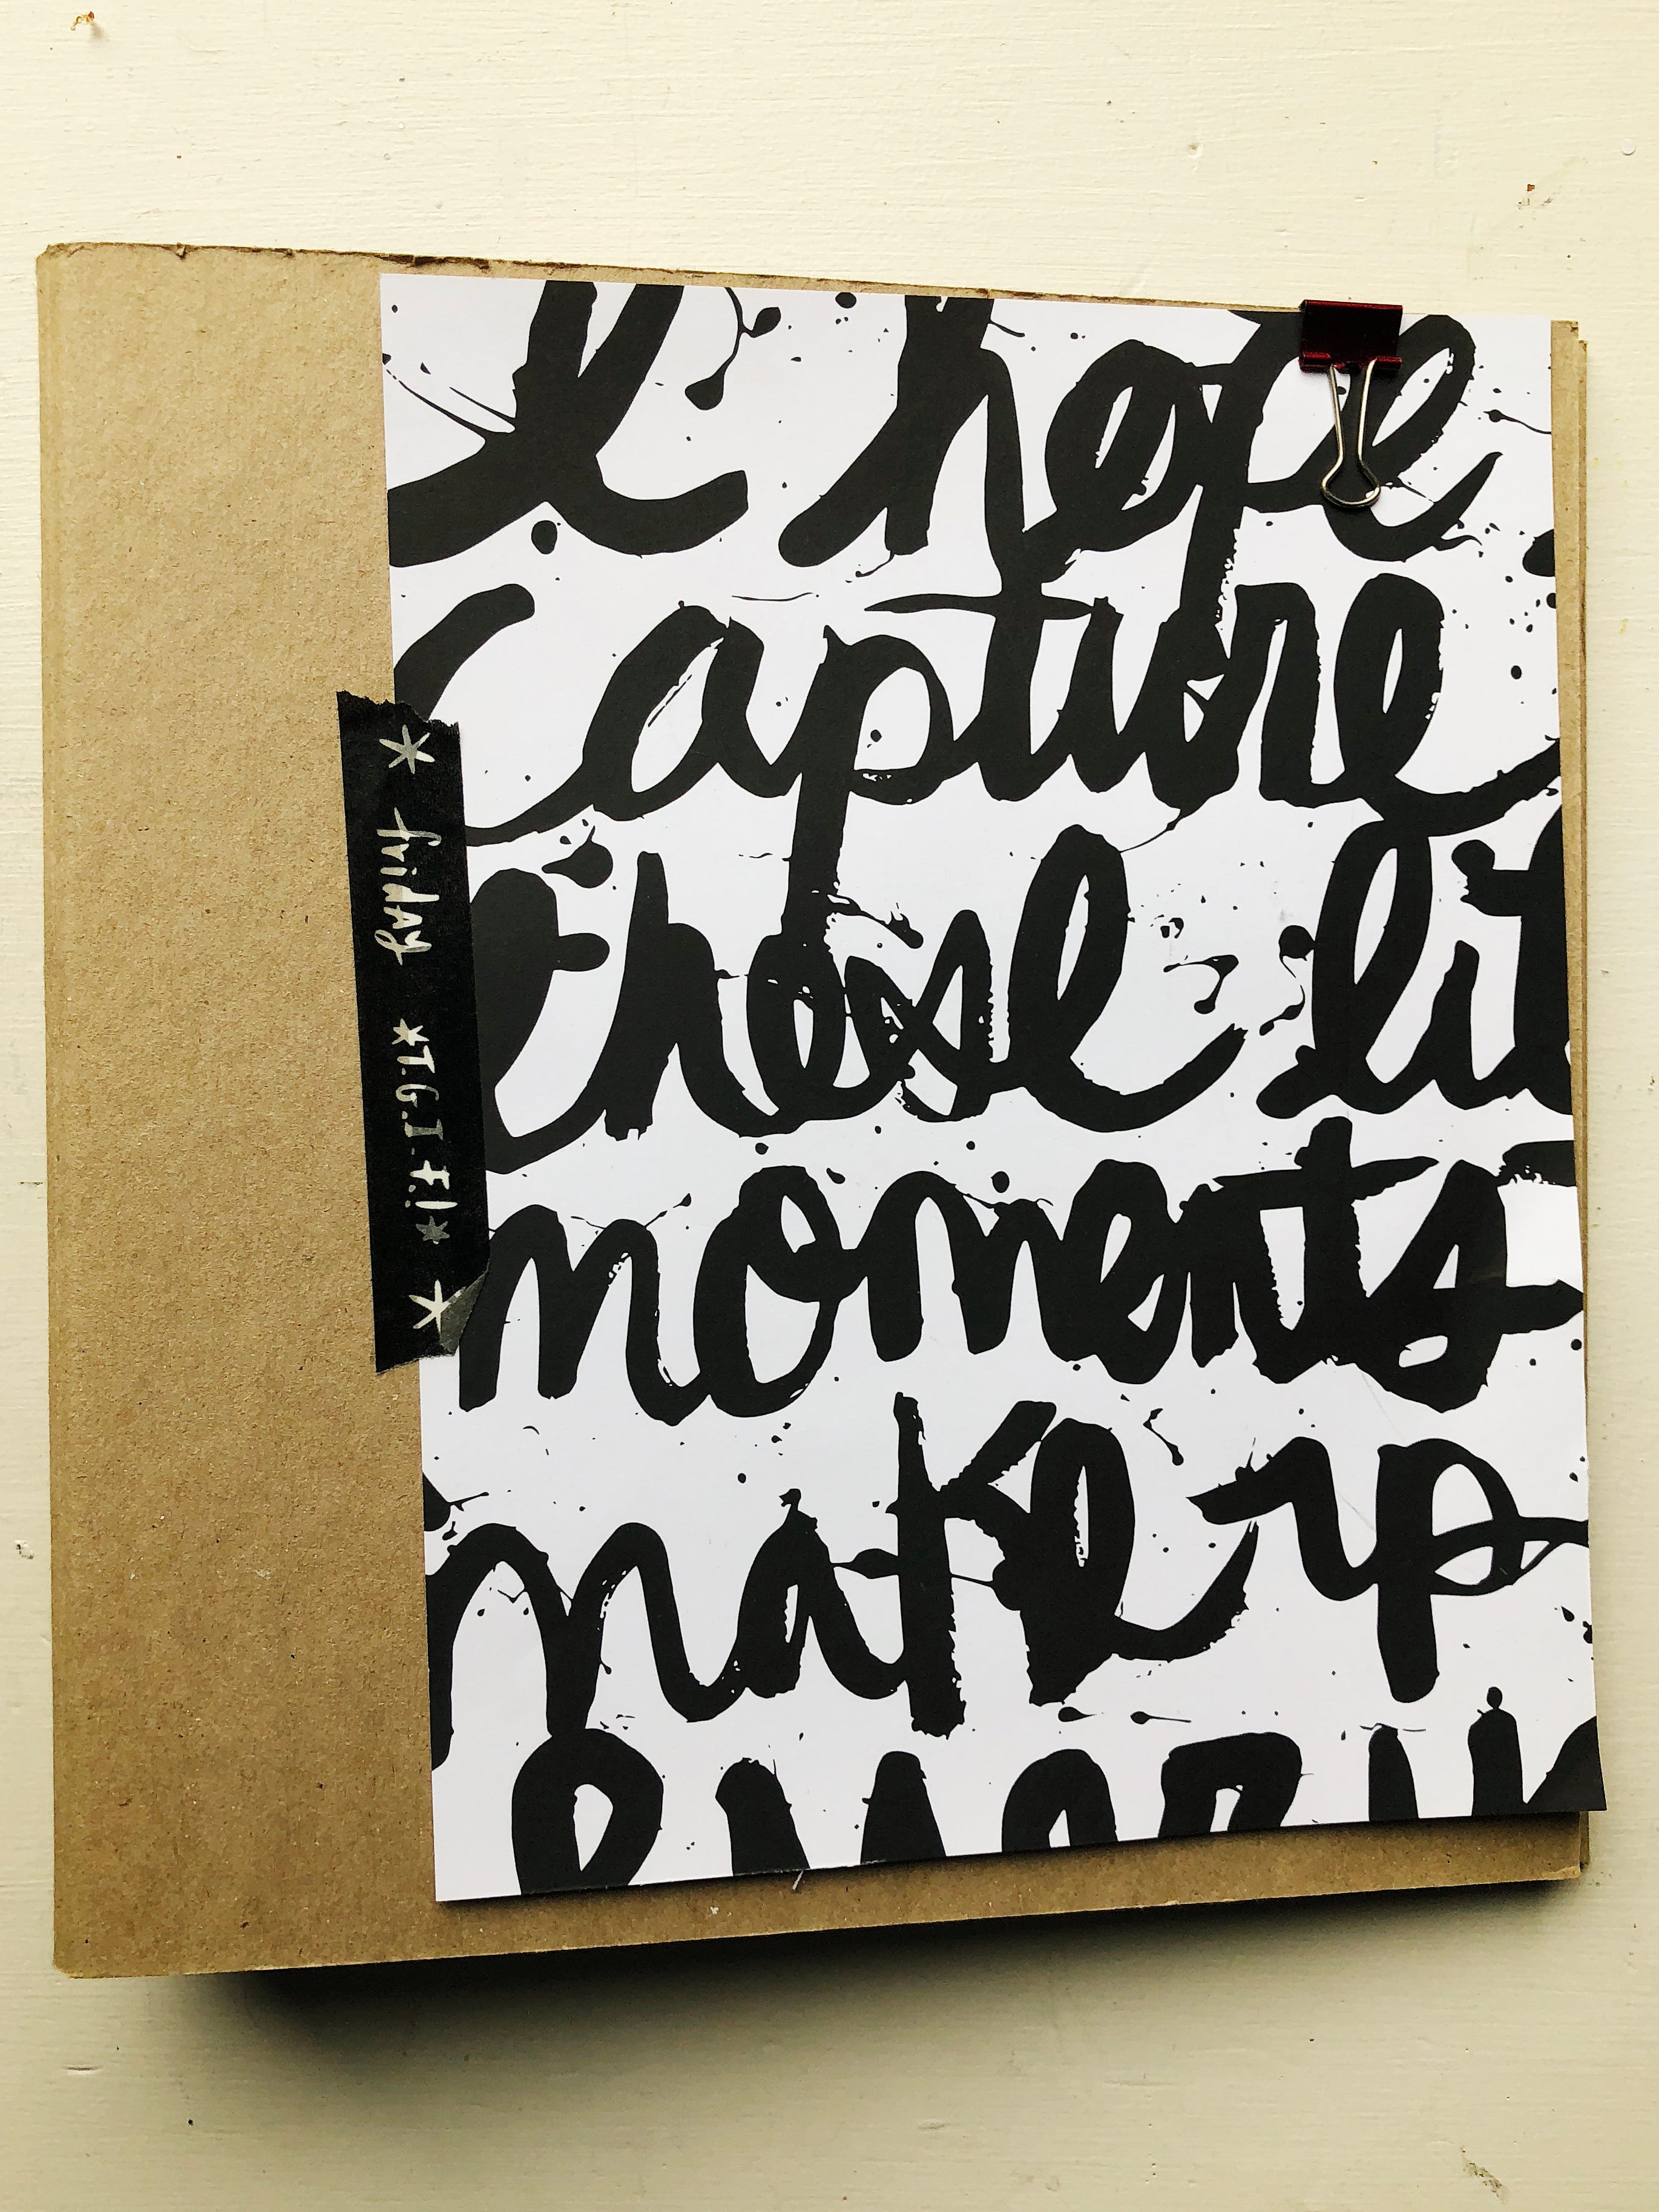 I hope
capture
those lit
moments
make up
friday
T.G.I.F.!